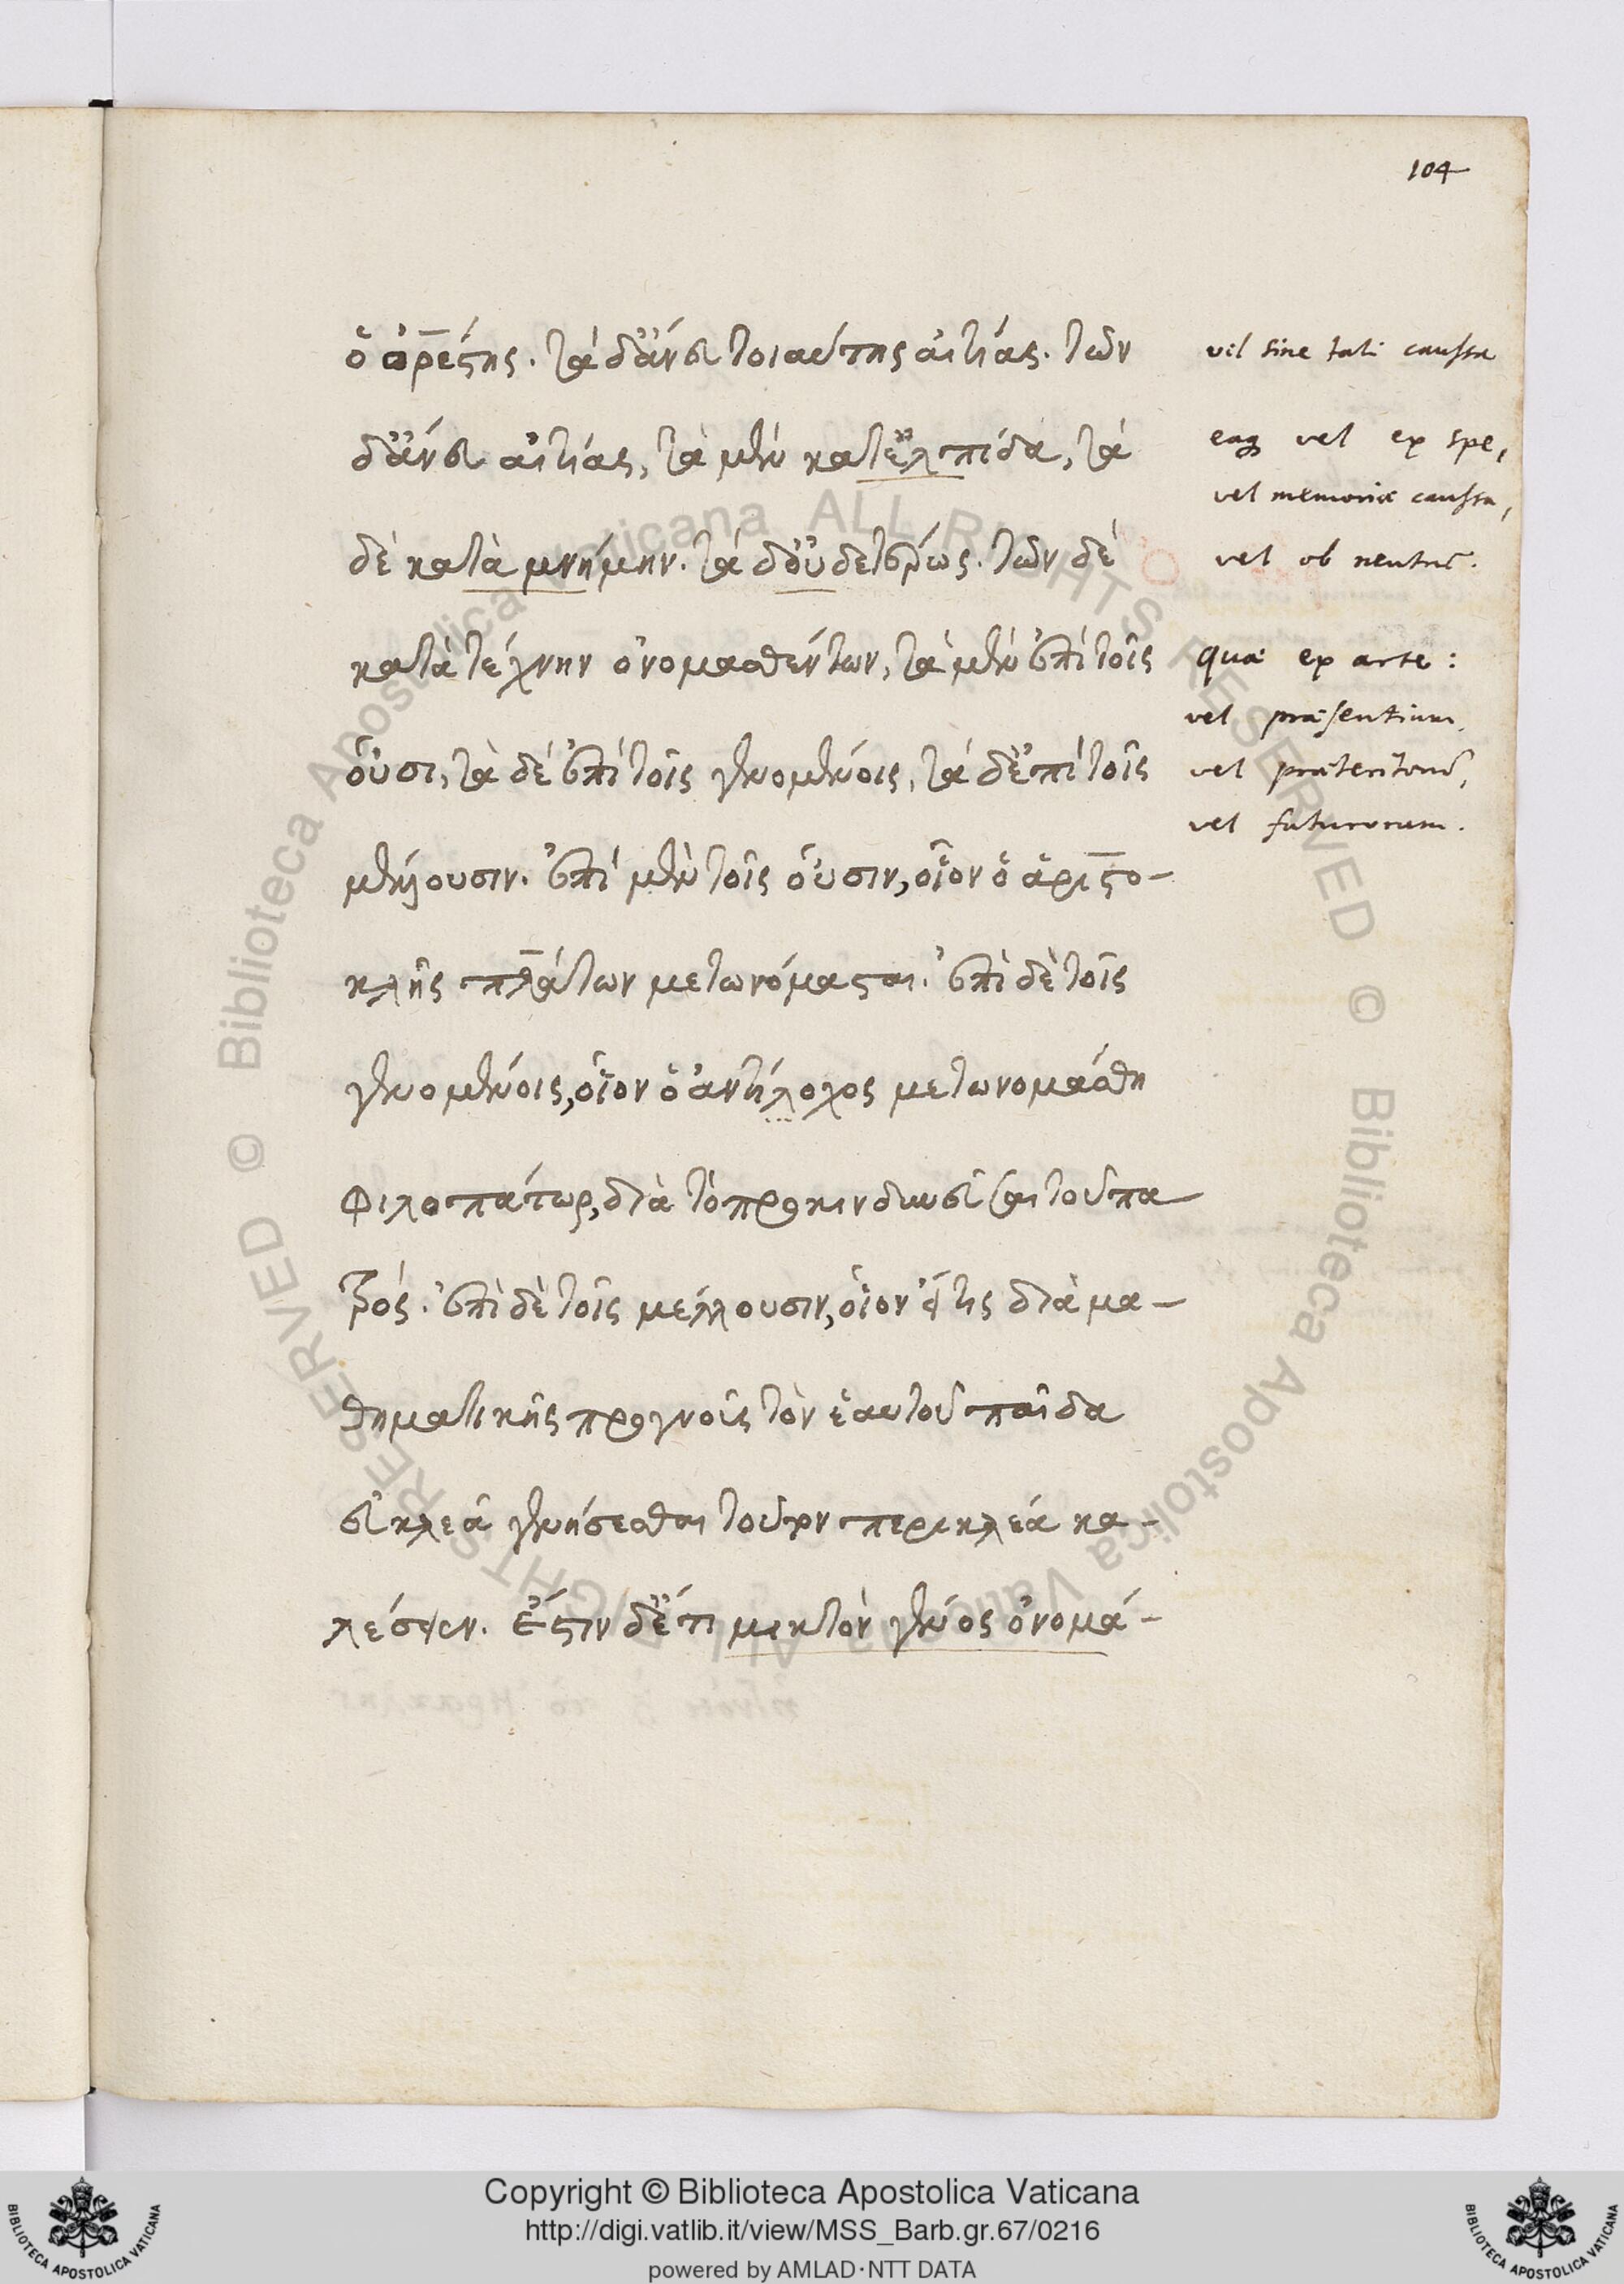 104
ὁ ὀρέστης. τὰ δ' ἄνευ τοιαύτης αἰτίας. τῶν
vel sine tali caussa
δ' ἄνευ αἰτίας, τὰ μὲν κατ' ἐλπίδα, τὰ
eaq vel ex spe,
vel memoriæ caussa,
δὲ κατὰ μνήμην. τὰ δ' οὐδετέρως. τῶν δὲ
vel ob neutrū.
κατὰ τέχνην ὀνομασθέντων, τὰ μὲν ἐπὶ τοῖς
quæ ex arte:
vel præsentium,
οὖσι, τὰ δὲ ἐπὶ τοῖς γενομένοις, τὰ δ' ἐπὶ τοῖς
vel præteritorū,
vel futurorum.
μέλλουσιν. ἐπὶ μὲν τοῖς οὖσιν, οἷον ὁ ἀριστο-
κλῆς πλάτων μετωνόμασται. ἐπὶ δὲ τοῖς
γενομένοις, οἷον ὁ ἀντίλοχος μετωνομάσθη
φιλοπάτωρ, διὰ τὸ προκινδυνεῦσαι τοῦ πα
τρός. ἐπὶ δὲ τοῖς μέλλουσιν, οἷον εἴ τις διὰ μα-
θηματικῆς προγνοὺς τὸν ἑαυτοῦ παῖδα
εὐκλεᾶ γενήσεσθαι τοῦτον περικλέα κα-
λέσειεν. ἔστιν δ' ἔτι μικτὸν γένος ὀνομά-
Copyright © Biblioteca Apostolica Vaticana
http://digi.vatlib.it/view/MSS_Barb.gr.67/0216
powered by AMLAD·NTT DATA